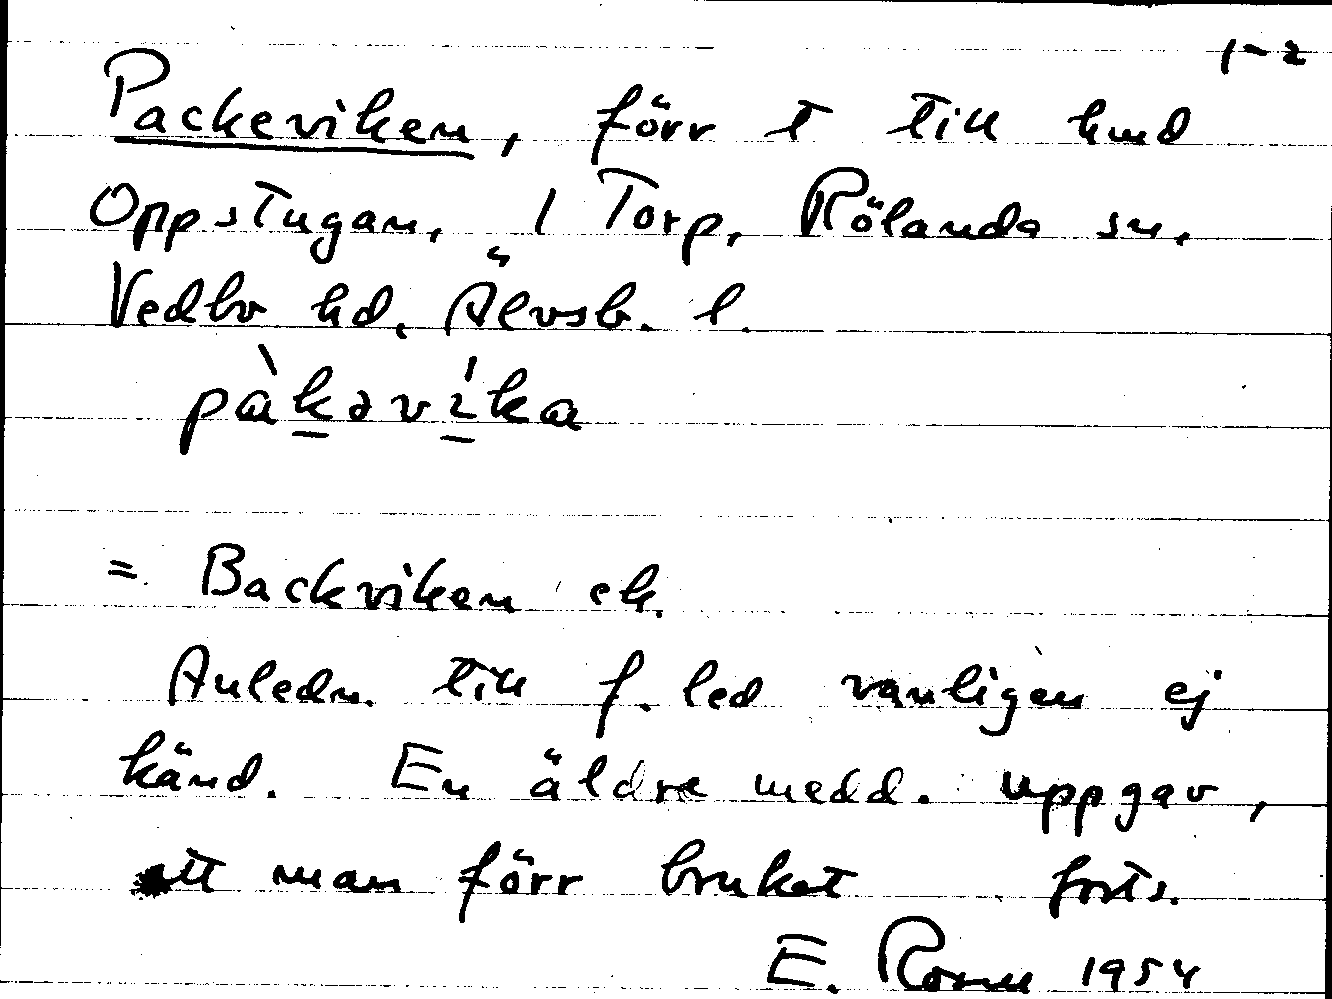 1-2
Packeviken, förr t till hmd
Oppstugan, 1 Torp, Rölanda sn,
Vedbo hd, Älvsb. l.
pàkəvíka
= Backviken ek.
Anledn. till f. led vanligen ej
känd. En äldre medd. uppgav,
att man förr brukat forts.
E. 1954